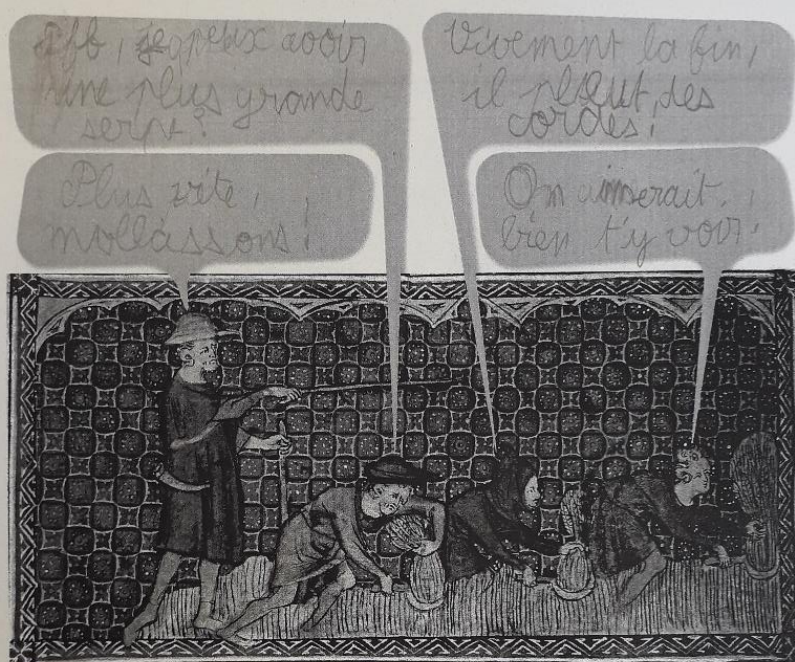 Pff, je peux avoir
une plus grande
serpe?
Vivement la fin,
il pleut des
cordes!
Plus vite,
mollassons!
On aimerait
bien t'y voir!